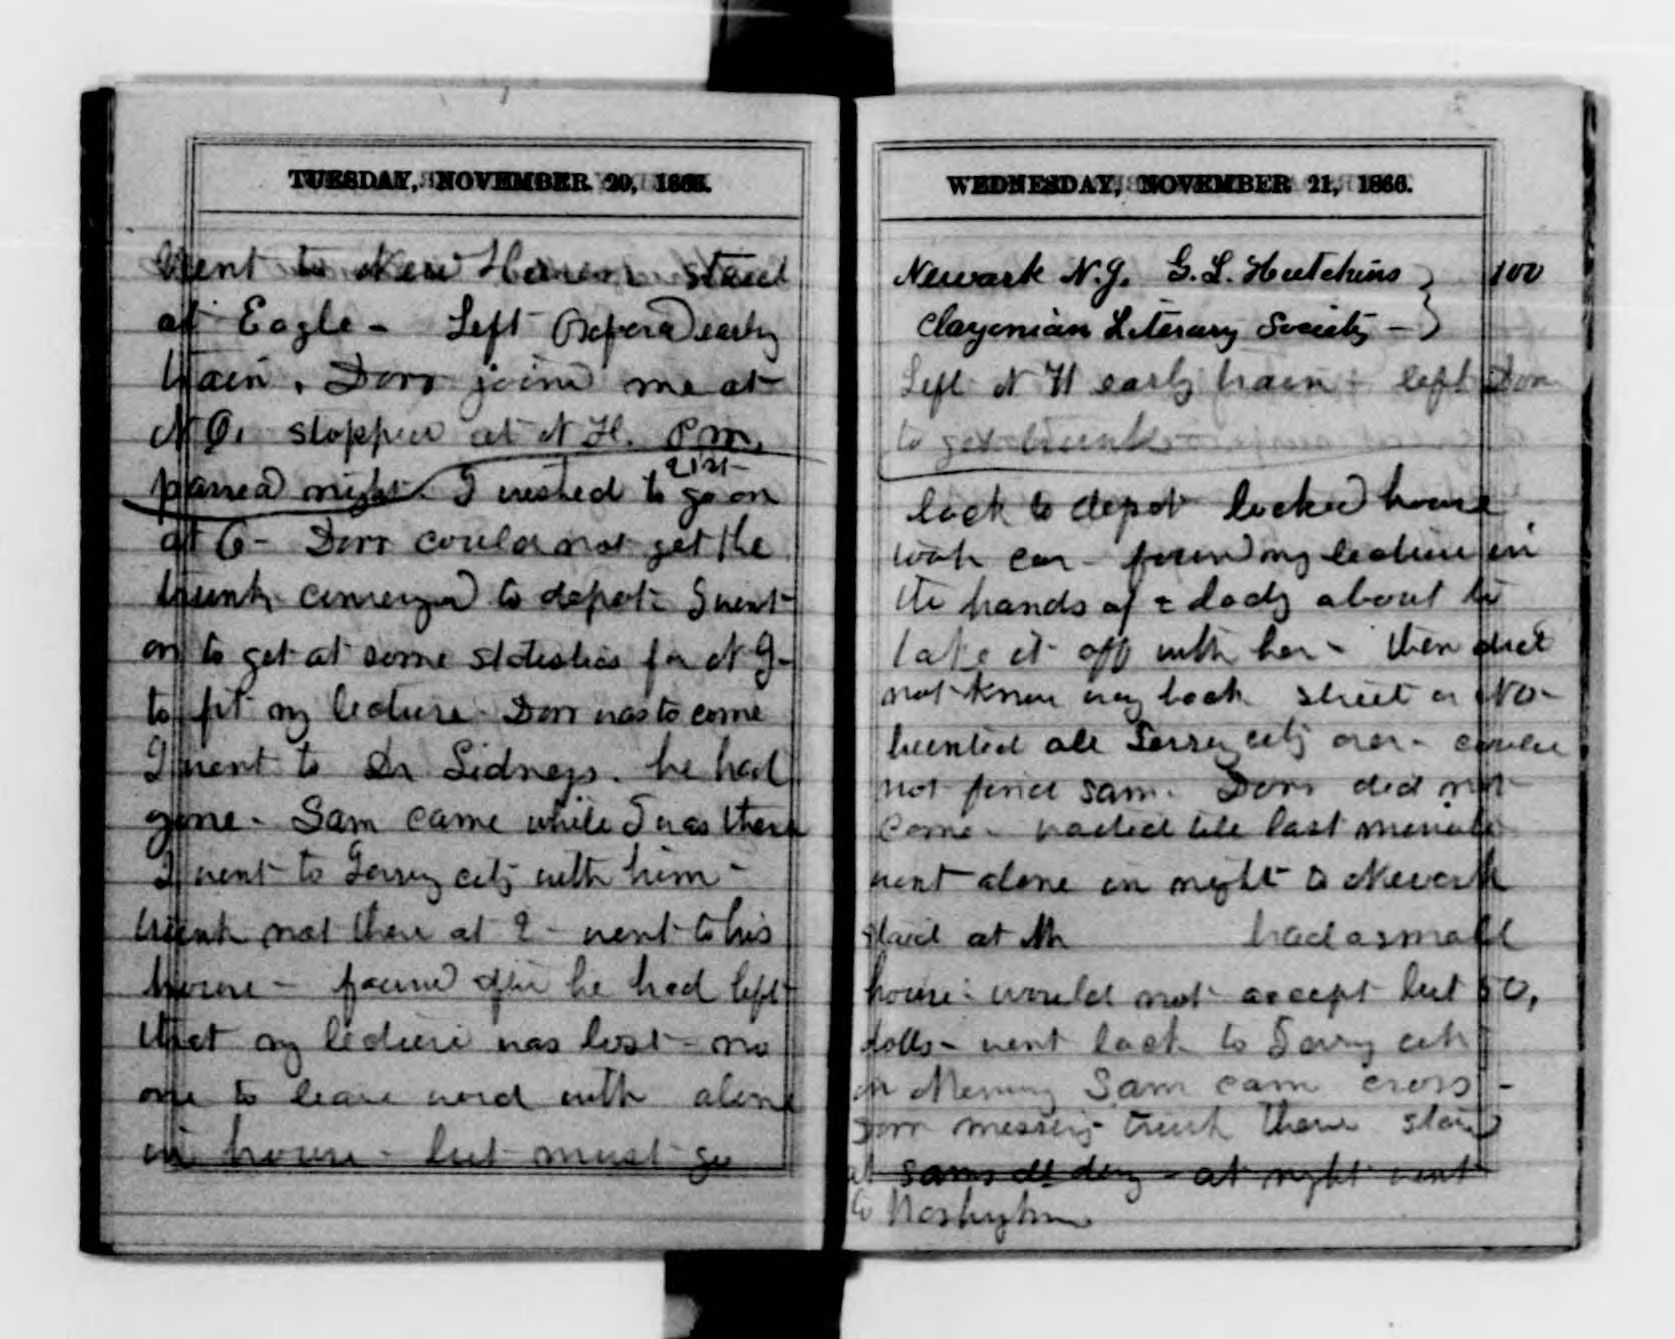 TUESDAY, NOVEMBER 20, 1866.
Went to New Haven staid
at Eagle - Left Oxford early
train, Dorr joind me at
N O. stopped at N H. P m.
passed night. I wished to go on
21st
at 6 - Dorr could not get the
trunk conveyed to depot - I went
on to get at some statistics for N J -
to fit my lecture - Dorr was to come
I went to Dr Sidneys. he had
gone - Sam came while I was there
I went to Jersey city with him -
trunk not there at 2 - went to his
house - found after he had left
that my lecture was lost - no
one to leave word with alone
in house - but must go
WEDNESDAY, NOVEMBER 21, 1866.
Newark N.J. G. L. Hutchins 100
Clayonian Literary Society -
Left N H early train - left Dorr
to get trunk -
back to depot locked house
took car - found my lecture in
the hands of a lady about to
take it off with her - then did
not know way back street or No -
hunted all Jersey city over - could
not find Sam. Dorr did not
come - waited till last minute
went alone in night to Newark
staid at Mr had a small
house: would not accept but 50,
dolls - went back to Jersey city
in Morning Sam cam cross -
Dorr missing trunk there staid
at Sams all day - at night went
to Washington